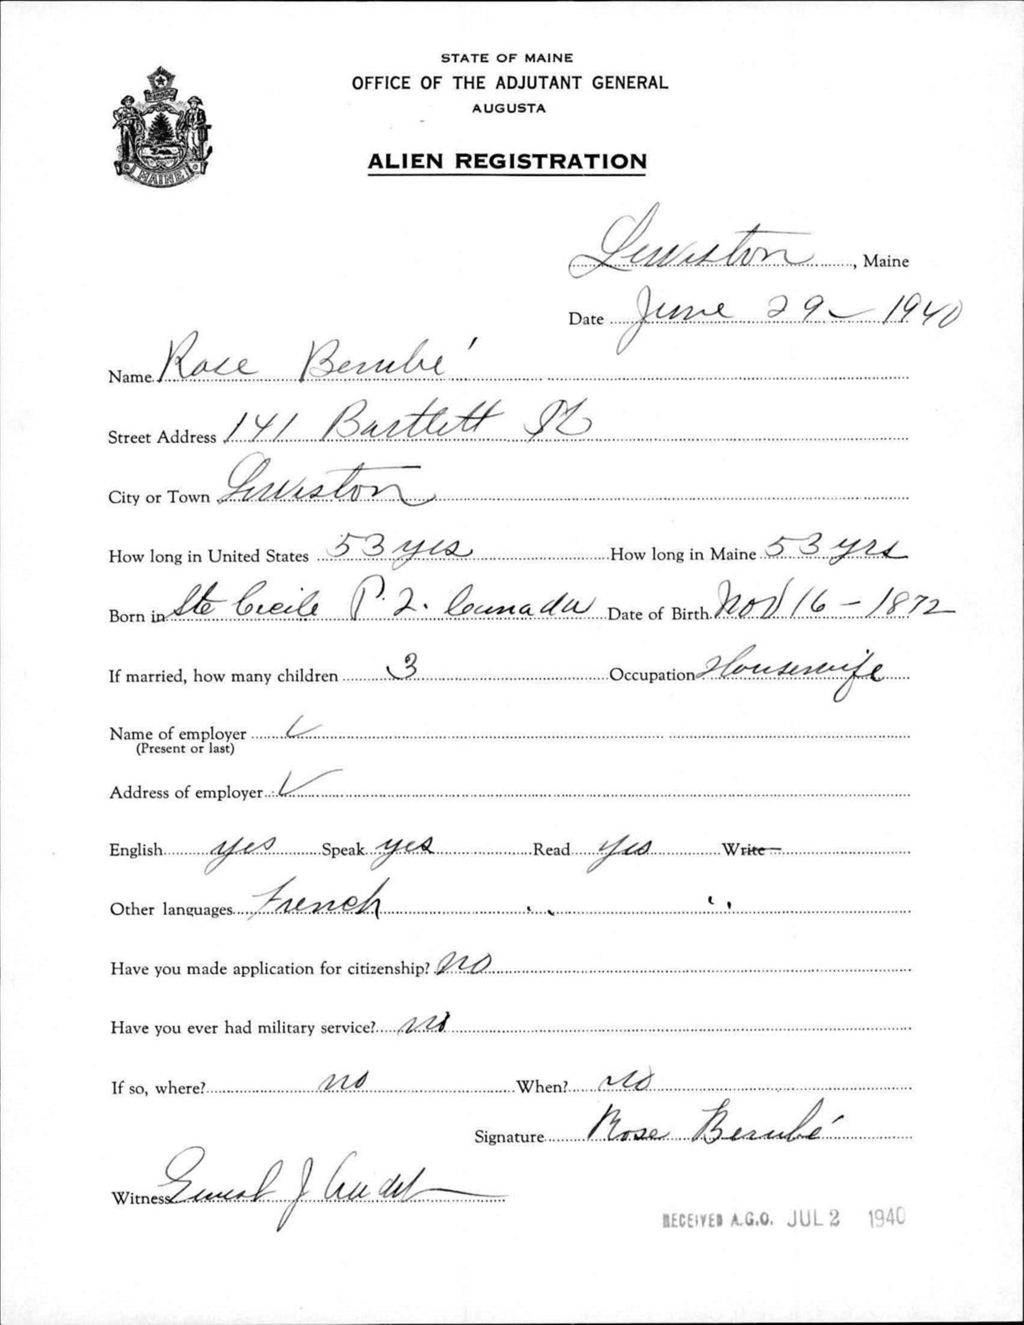 STATE OF MAINE
OFFICE OF THE ADJUTANT GENERAL
AUGUSTA
ALIEN REGISTRATION
MAINE
Lewiston, Maine
Date June 29 - 1940
Name Rose Berubé
Street Address 141 Bartlett St
City or Town Lewiston
How long in United States 53 yrs How long in Maine 53 yrs
Born in Ste Cecile P.Q. Canada Date of Birth Nov 16 - 1872
If married, how many children 3 Occupation Housewife
Name of employer ✓
(Present or last)
Address of employer ✓
English yes Speak yes Read yes Write —
Other languages French " "
Have you made application for citizenship? no
Have you ever had military service? no
If so, where? no When? no
Signature Rose Berubé
Witness Ernest J Audet
RECEIVED A.G.O. JUL 2 1940